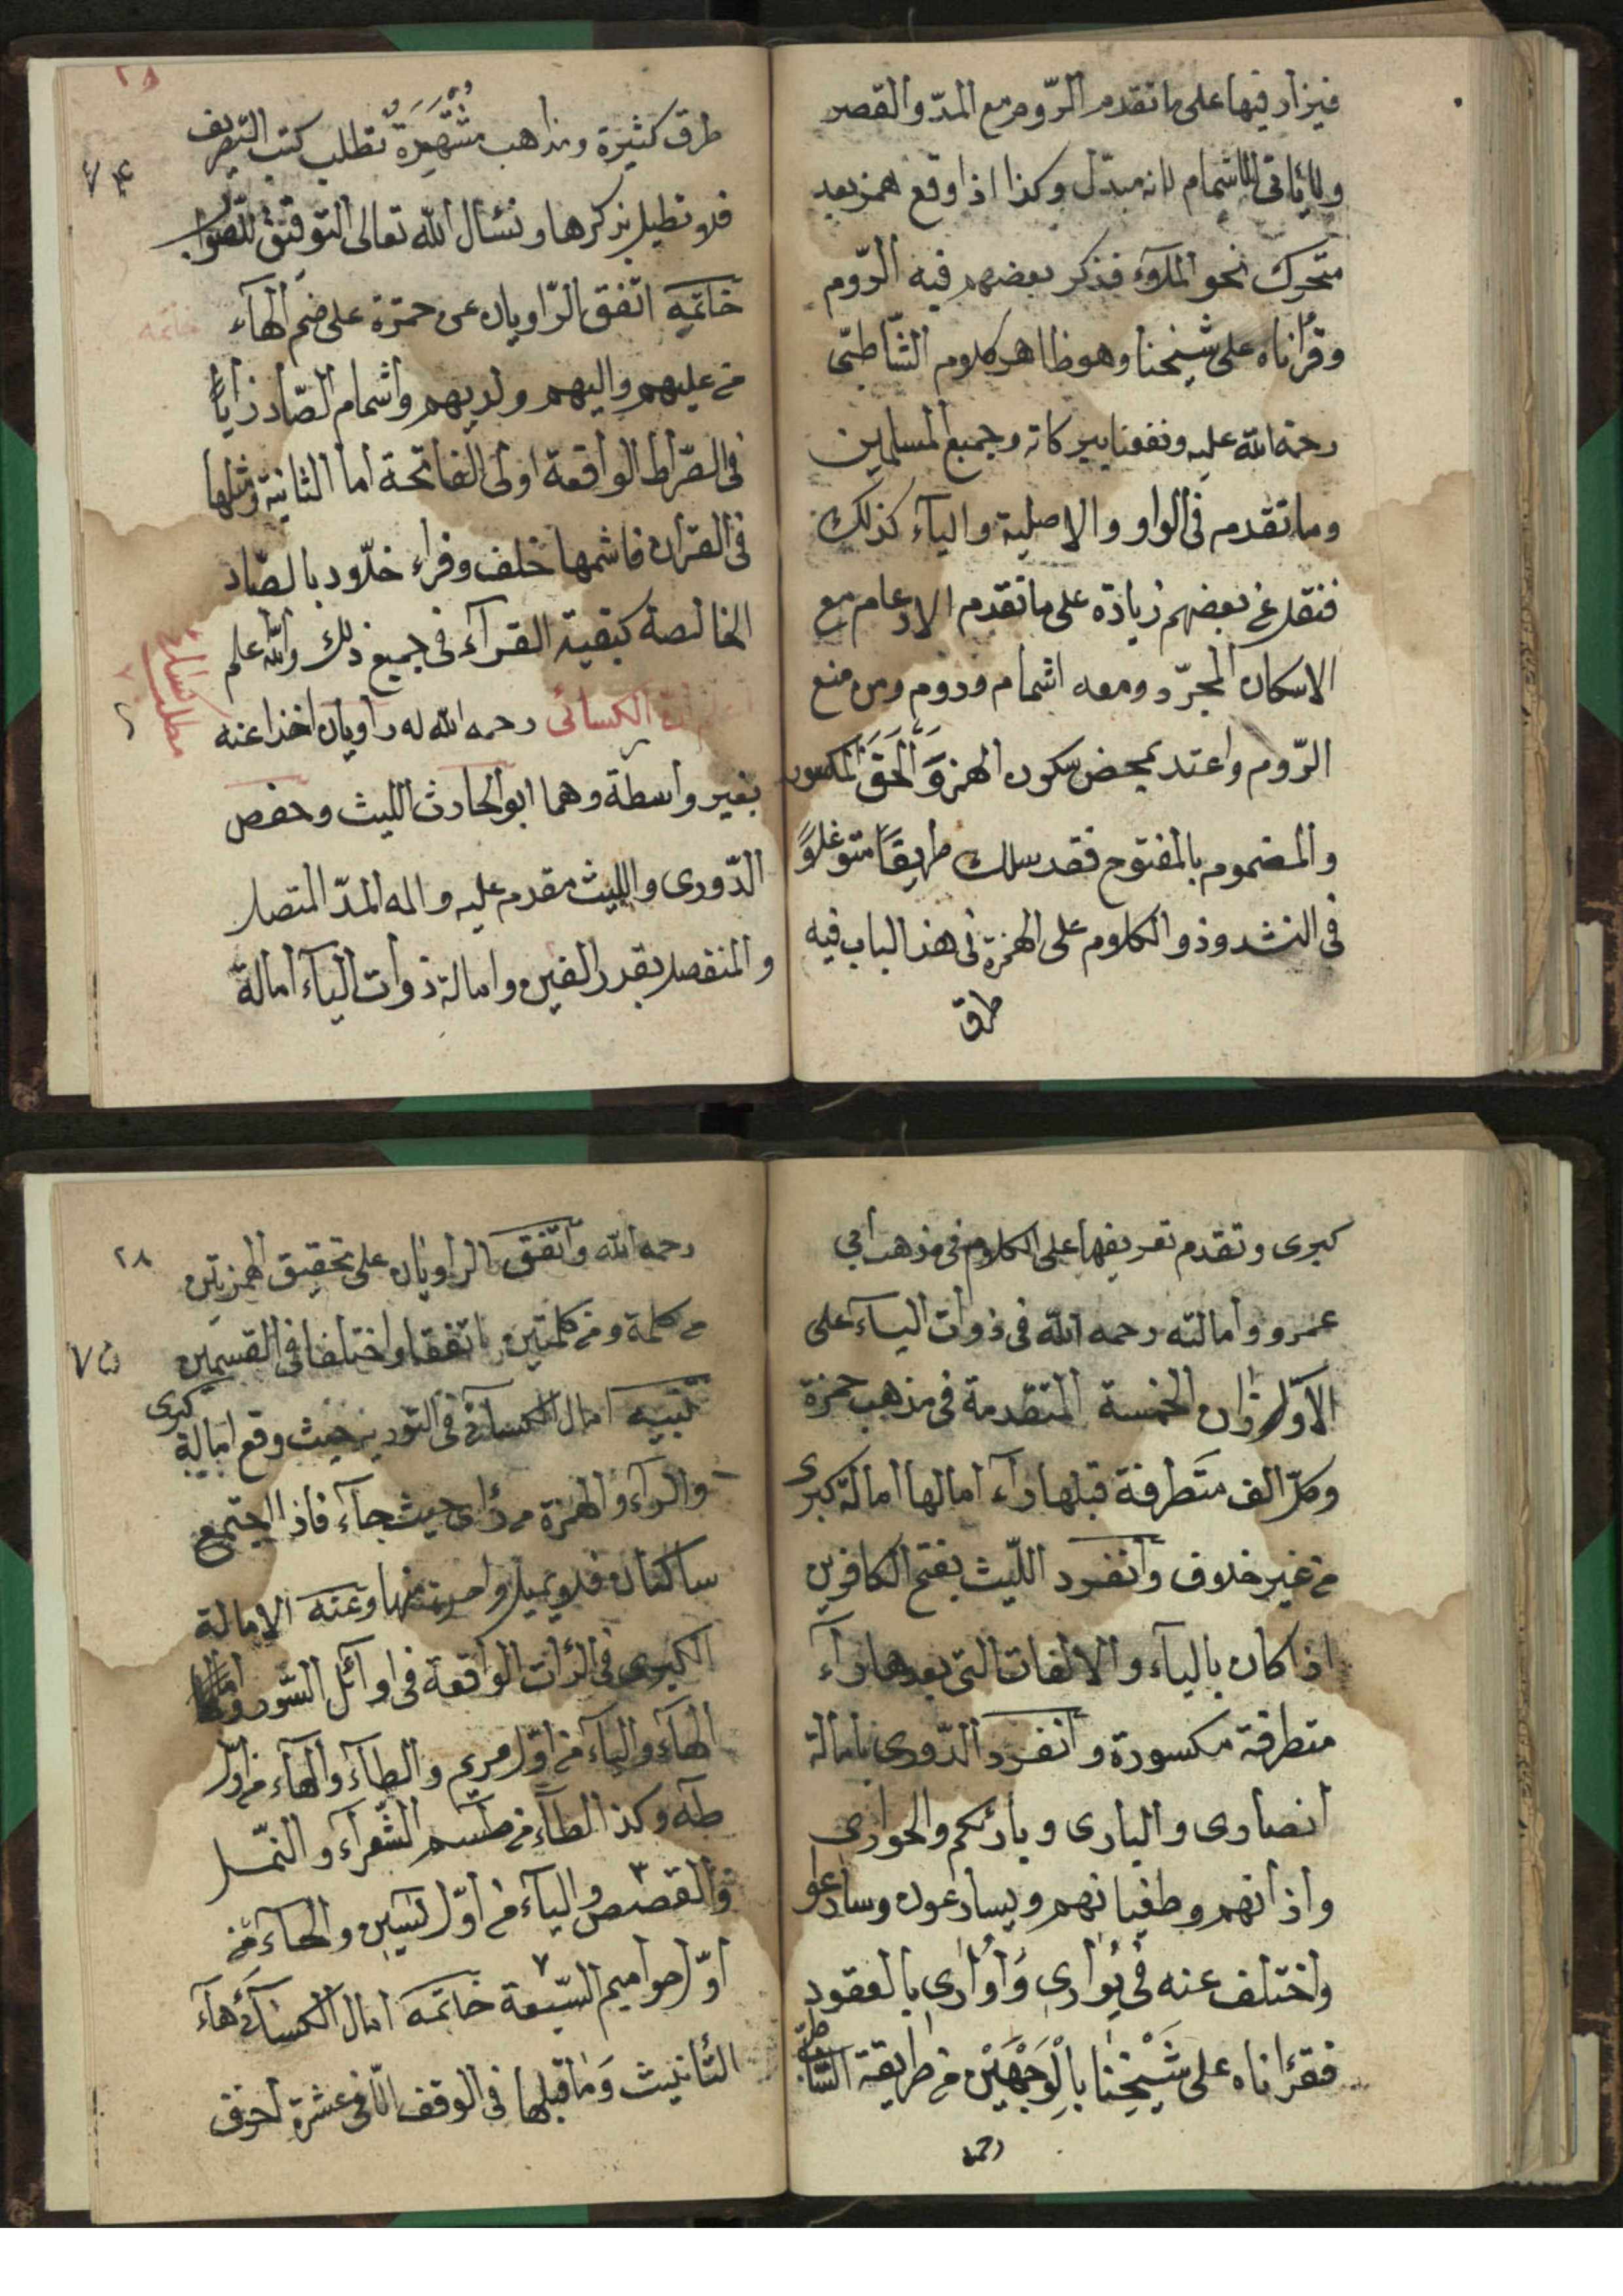 فيزاد فيها على ما تقدم الرّوم مع المدّ والقصر
ولا يأتى الاشمام لانه مبدل وكذا اذا وقع همز بعد
متحرك نحو الملاء فذكر بعضهم فيه الرّوم
وقرأناه على شيخنا وهو ظاهر كلام الشّاطبىّ
رحمة الله عليه ونفعنا ببركاته وجميع المسلمين
وما تقدم فى الواو والاصلية والياء كذلك
فنقل عن بعضهم زيادة على ما تقدم الادغام مع
الاسكان المجرّد ومعه اشمام وروم ومن منع
الرّوم واعتد بمحض سكون الهمز وَأَلْحَقَ المكسور
والمضموم بالمفتوح فقد سلك طريقًا متوغلاً
فى الشذوذ والكلام على الهمزة فى هذا الباب فيه
طرق
٢٨
طرق كثيرة ومذاهب مُشْتَهِرَةٌ تطلب كتب التصريف
٧٤
فلا نطيل بذكرها ونسأل الله تعالى التوفيق للصواب
خاتمة اتّفق الرّاويان عن حمزة على ضم الهآء
خاتمه
من عليهم واليهم ولديهم واشمام الصّاد زايًا
فى الصّراط الواقعة اولى الفاتحة اما الثانية ومثلها
فى القرآن فاشمها خلف وقراء خلّاد بالصّاد
الخالصة كبقية القرآء فى جميع ذلك والله اعلم
الكسائى رحمه الله له راويان اخذا عنه
بغير واسطة وهما ابو الحارث الليث وحفص
الدّورى والليث مقدم عليه واله المدّ المتصل
والمنفصل بقدر الفين وامالة ذوات اليآء امالة
كبرى وتقدم تعريفها على الكلام فى مذهب ابى
عمرو وامالته رحمه الله فى ذوات اليآء على
الاوزان الخمسة المتقدمة فى مذهب حمزة
وكلّ الف متطرفة قبلها رآء امالها امالة كبرى
من غير خلاف وانفرد اللّيث بفتح الكافرين
اذا كان باليآء والالفات التى بعدها رآء
متطرفة مكسورة وانفرد الدّورى بامالة
انصارى والبارى وبارئكم والجوارى
واذانهم وطغيانهم ويسارعون وسارعوا
واختلف عنه فى يُوَارى وَأُوَارى بالعقود
فقرأناه على شَيْخِنَا بِالْوَجْهَيْنِ من طريقة الشاطبيّة
رحمه
٢٨
رحمه الله واتّفق الراويان على تحقيق الهمزتين
٧٥
من كلمة ومن كلمتين اتفقا واختلفا فى القسمين
تنبيه امال الكسائى فى التورية حيث وقع امالة كبرى
والرآء والهمزة من رأى حيث جآء فاذا اجتمع
ساكنان فلا يميل واحدة منها وعنه الامالة
الكبرى فى الرّات الواقعة فى اوائل السّور وامال
الهآء واليآء من اوّل مريم والطآء والهآء من اوّل
طه وكذا الطآء من طسم الشّعرآء والنّمل
والقصص واليآء من اوّل يسين والحآء من
اوّل حواميم السّبعة خاتمة امال الكسآئى هآء
التأنيث وَمَا قبلها فى الوقف الّا فى عشرة احرف